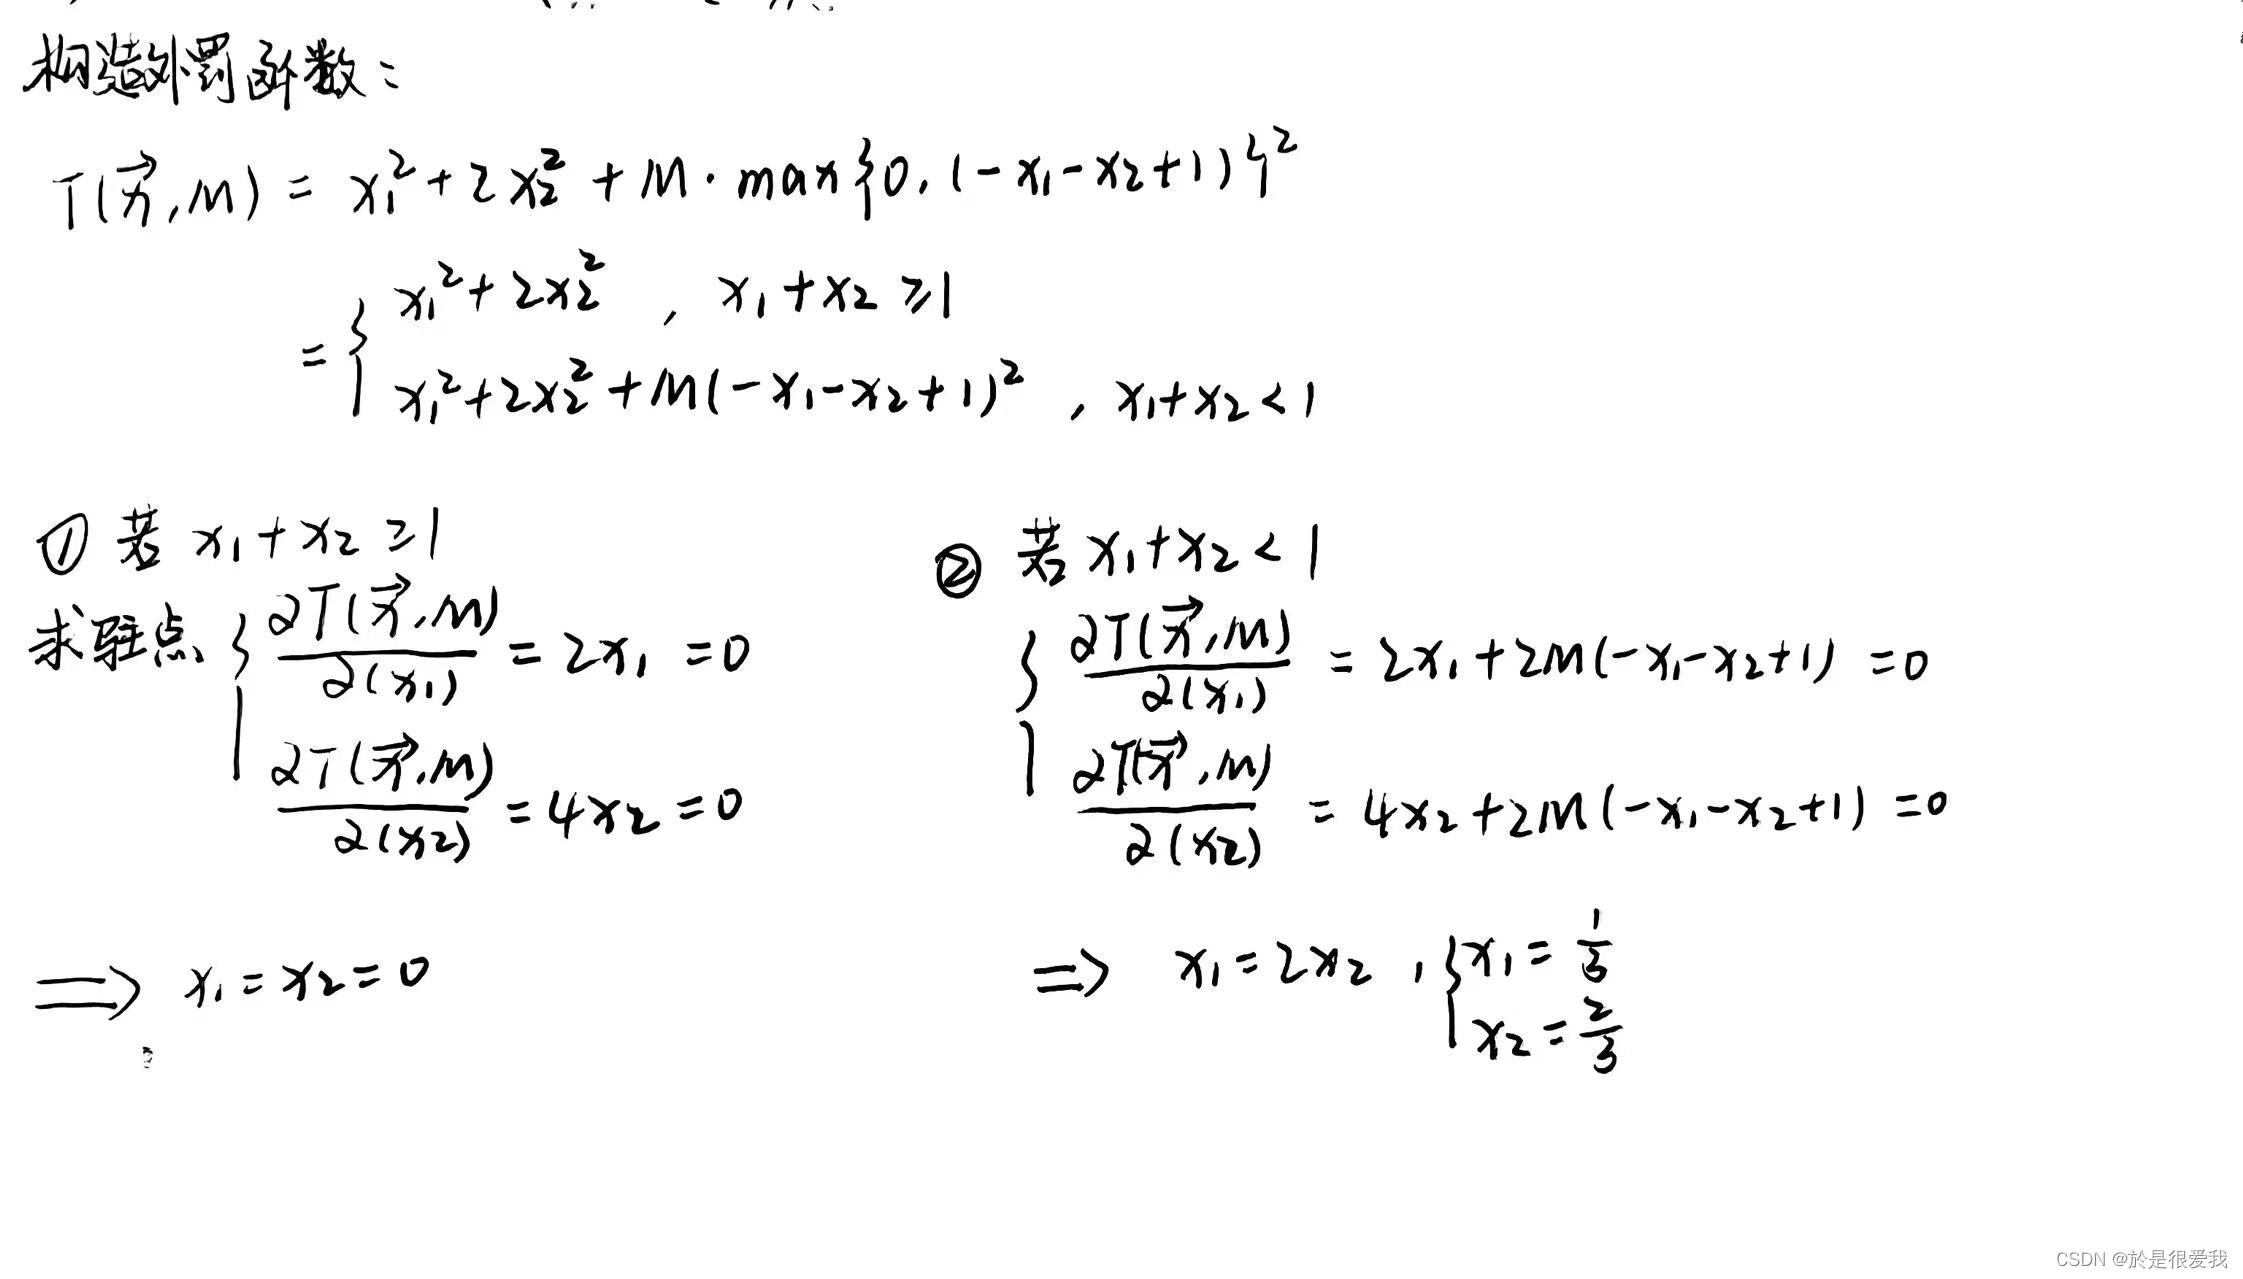 构造外罚函数：
T(x⃗,M) = x₁² + 2x₂² + M·max{0,(-x₁-x₂+1)}²
= { x₁² + 2x₂² , x₁+x₂ ≥ 1
x₁² + 2x₂² + M(-x₁-x₂+1)² , x₁+x₂ < 1
① 若 x₁+x₂ ≥ 1
求驻点 { ∂T(x⃗,M)/∂(x₁) = 2x₁ = 0
∂T(x⃗,M)/∂(x₂) = 4x₂ = 0
⇒ x₁ = x₂ = 0
② 若 x₁+x₂ < 1
{ ∂T(x⃗,M)/∂(x₁) = 2x₁+2M(-x₁-x₂+1) = 0
∂T(x⃗,M)/∂(x₂) = 4x₂+2M(-x₁-x₂+1) = 0
⇒ x₁ = 2x₂ , { x₁ = 1/3
x₂ = 2/3
CSDN @於是很爱我